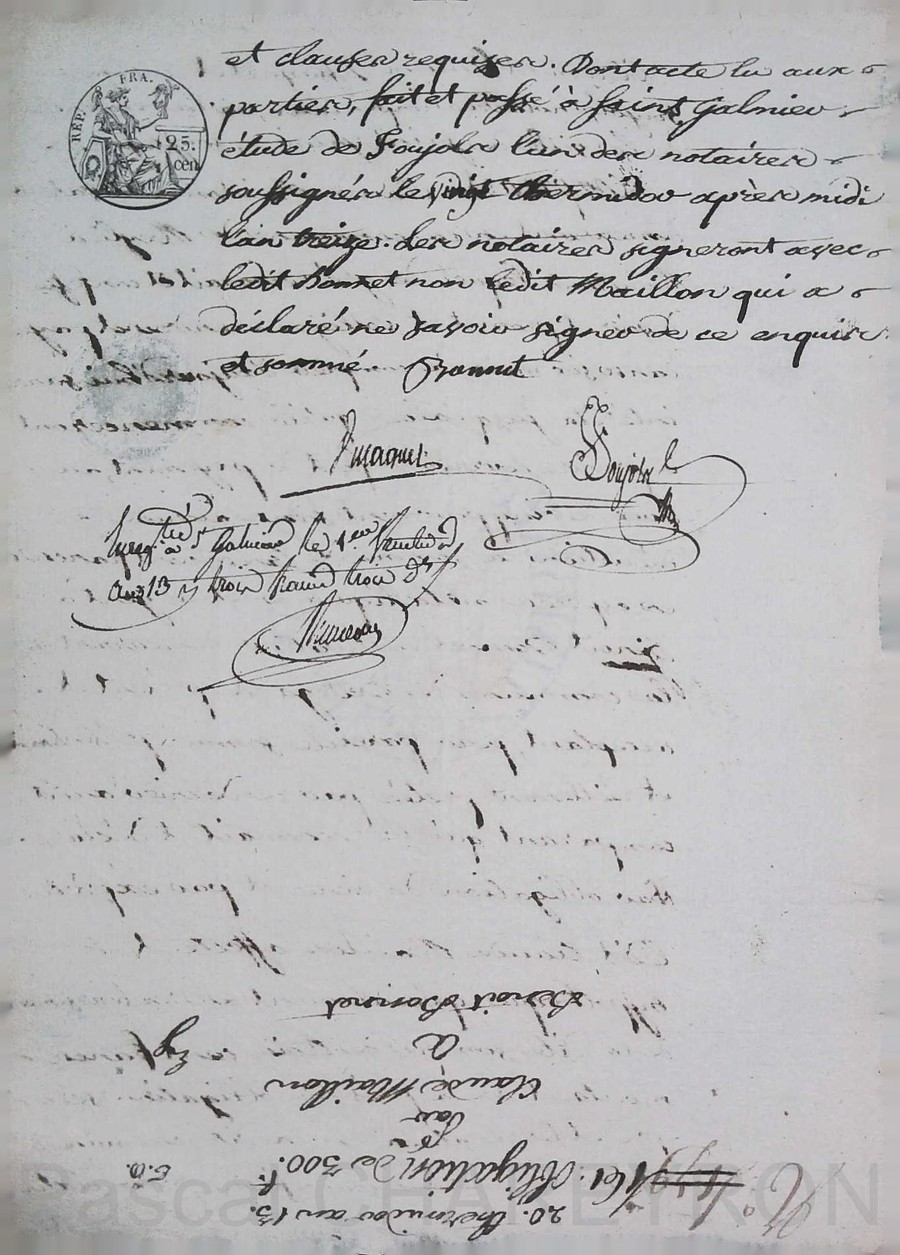 RÉP. FRA.
25.
cen
et clauses requises. Dont acte lu aux
parties, fait et passé à Saint Galmier
étude de Foujols l'un des notaires
soussignés le vingt thermidor après midi
l'an treize. Les notaires signeront avec
ledit Bonnet non ledit Maillon qui a
déclaré ne savoir signer de ce enquis
et sommé Bonnet
Foujols
Enregtré à St Galmier le
an 13 trois francs trois
Benoit Bonnet
A
Claude Maillon
par
Obligation de 300. f.
20. thermidor an 13.
Pascal CHAPEYRON